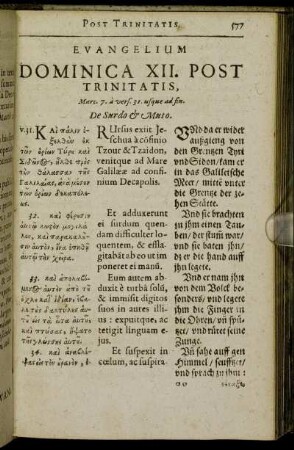 POST TRINITATIS, 577
EVANGELIUM
DOMINICA XII. POST
TRINITATIS,
Marc. 7. à vers. 31. usque ad fin.
De Surdo & Muto.
v.31. ΚΑὶ πάλιν
ἐξελθὼν ἐκ
τῶν ὁρίων Τύρου καὶ
Σιδῶνος, ἦλθε πρὸς
τὴν θάλασσαν τῆς
Γαλιλαίας, ἀνὰ μέσον
32. καὶ φέρουσιν
αὐτῷ κωφὸν μογιλάλον,
καὶ παρακαλοῦσιν
αὐτὸν, ἵνα ἐπιθῇ
αὐτῷ τὴν χεῖρα.
33. καὶ
αὐτὸν ἀπὸ τοῦ
ὄχλου
καὶ πτύσας, ἥψατο
34. καὶ
RUrsus exiit Jeschua
à confinio
Tzour & Tzaidon,
venitque ad mare
Galilææ ad confinium
Decapolis.
Et adduxerunt
ei surdum quendam
difficulter loquentem,
& efflagitabāt
ab eo ut imponeret
ei manū.
Eum autem abduxit
è turbâ solū,
& immisit digitos
suos in autes illius
: expuitque, ac
tetigit linguam ejus.
Et suspexit in
cœlum, ac suspira
Und da er wider
außgieng von
den Grenzen Tyri
und Sidon / kam er
in das Galileische
Meer / mitte unter
die Grenze der zehen
Stätte.
Und sie brachten
zu ihm einen Tauben /
der stum war /
und sie baten ihn /
dz er die hand auff
ihn legete.
Und er nam ihn
von dem Volck besonders /
und legete
ihm die Finger in
die Ohren / uñ spützet /
und rürete seine
Zunge.
Uñ sahe auff gen
Himmel / seuffzet /
und sprach zu ihm: